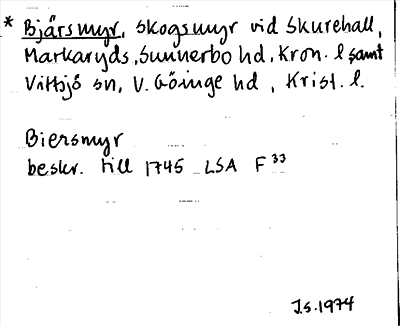 * Bjärsmyr, skogsmyr vid Skurehall,
Markaryds, Sunnerbo hd, Kron. l samt
Vittsjö sn, V. Göinge hd, Krist. l.
Biersmyr
beskr. till 1745 LSA F 33
J.S. 1974